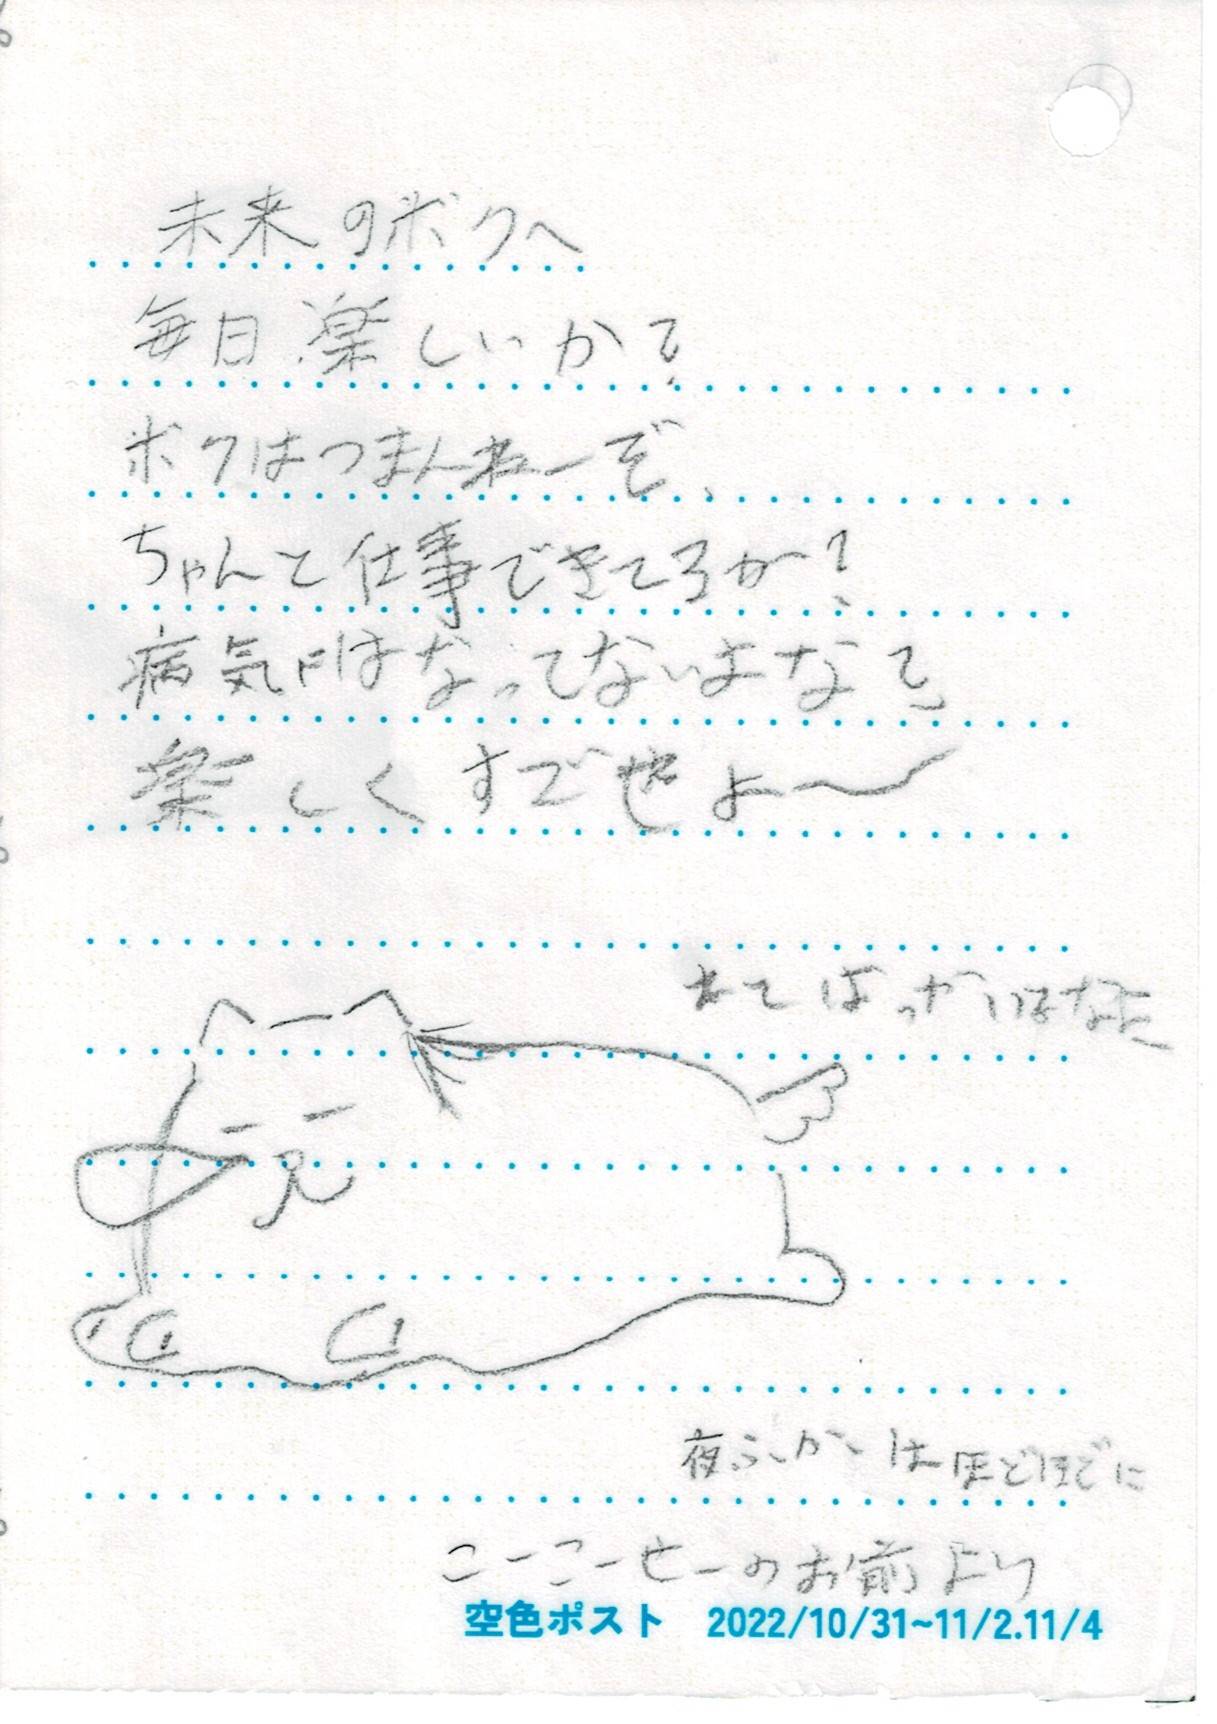 未来のボクへ
毎日楽しいか?
ボクはつまんねーぞ、
ちゃんと仕事できてるか?
病気にはなってないよな?
楽しくすごせよ〜
ねてばっか
夜ふかしはほどほどに
こーこーせーのお前より
空色ポスト 2022/10/31~11/2.11/4